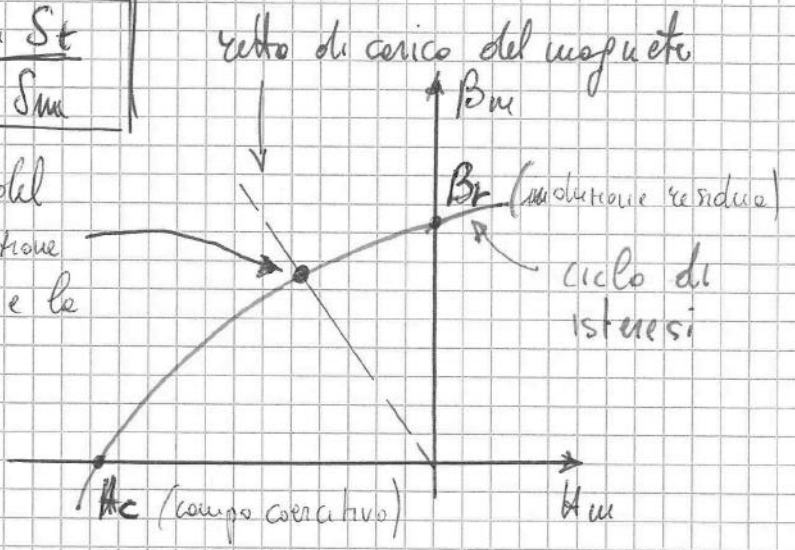 St
Sm
retta di carico del magnete
Bm
Br (induzione residua)
ciclo di
isteresi
e la
Hc (campo coercitivo)
Hm